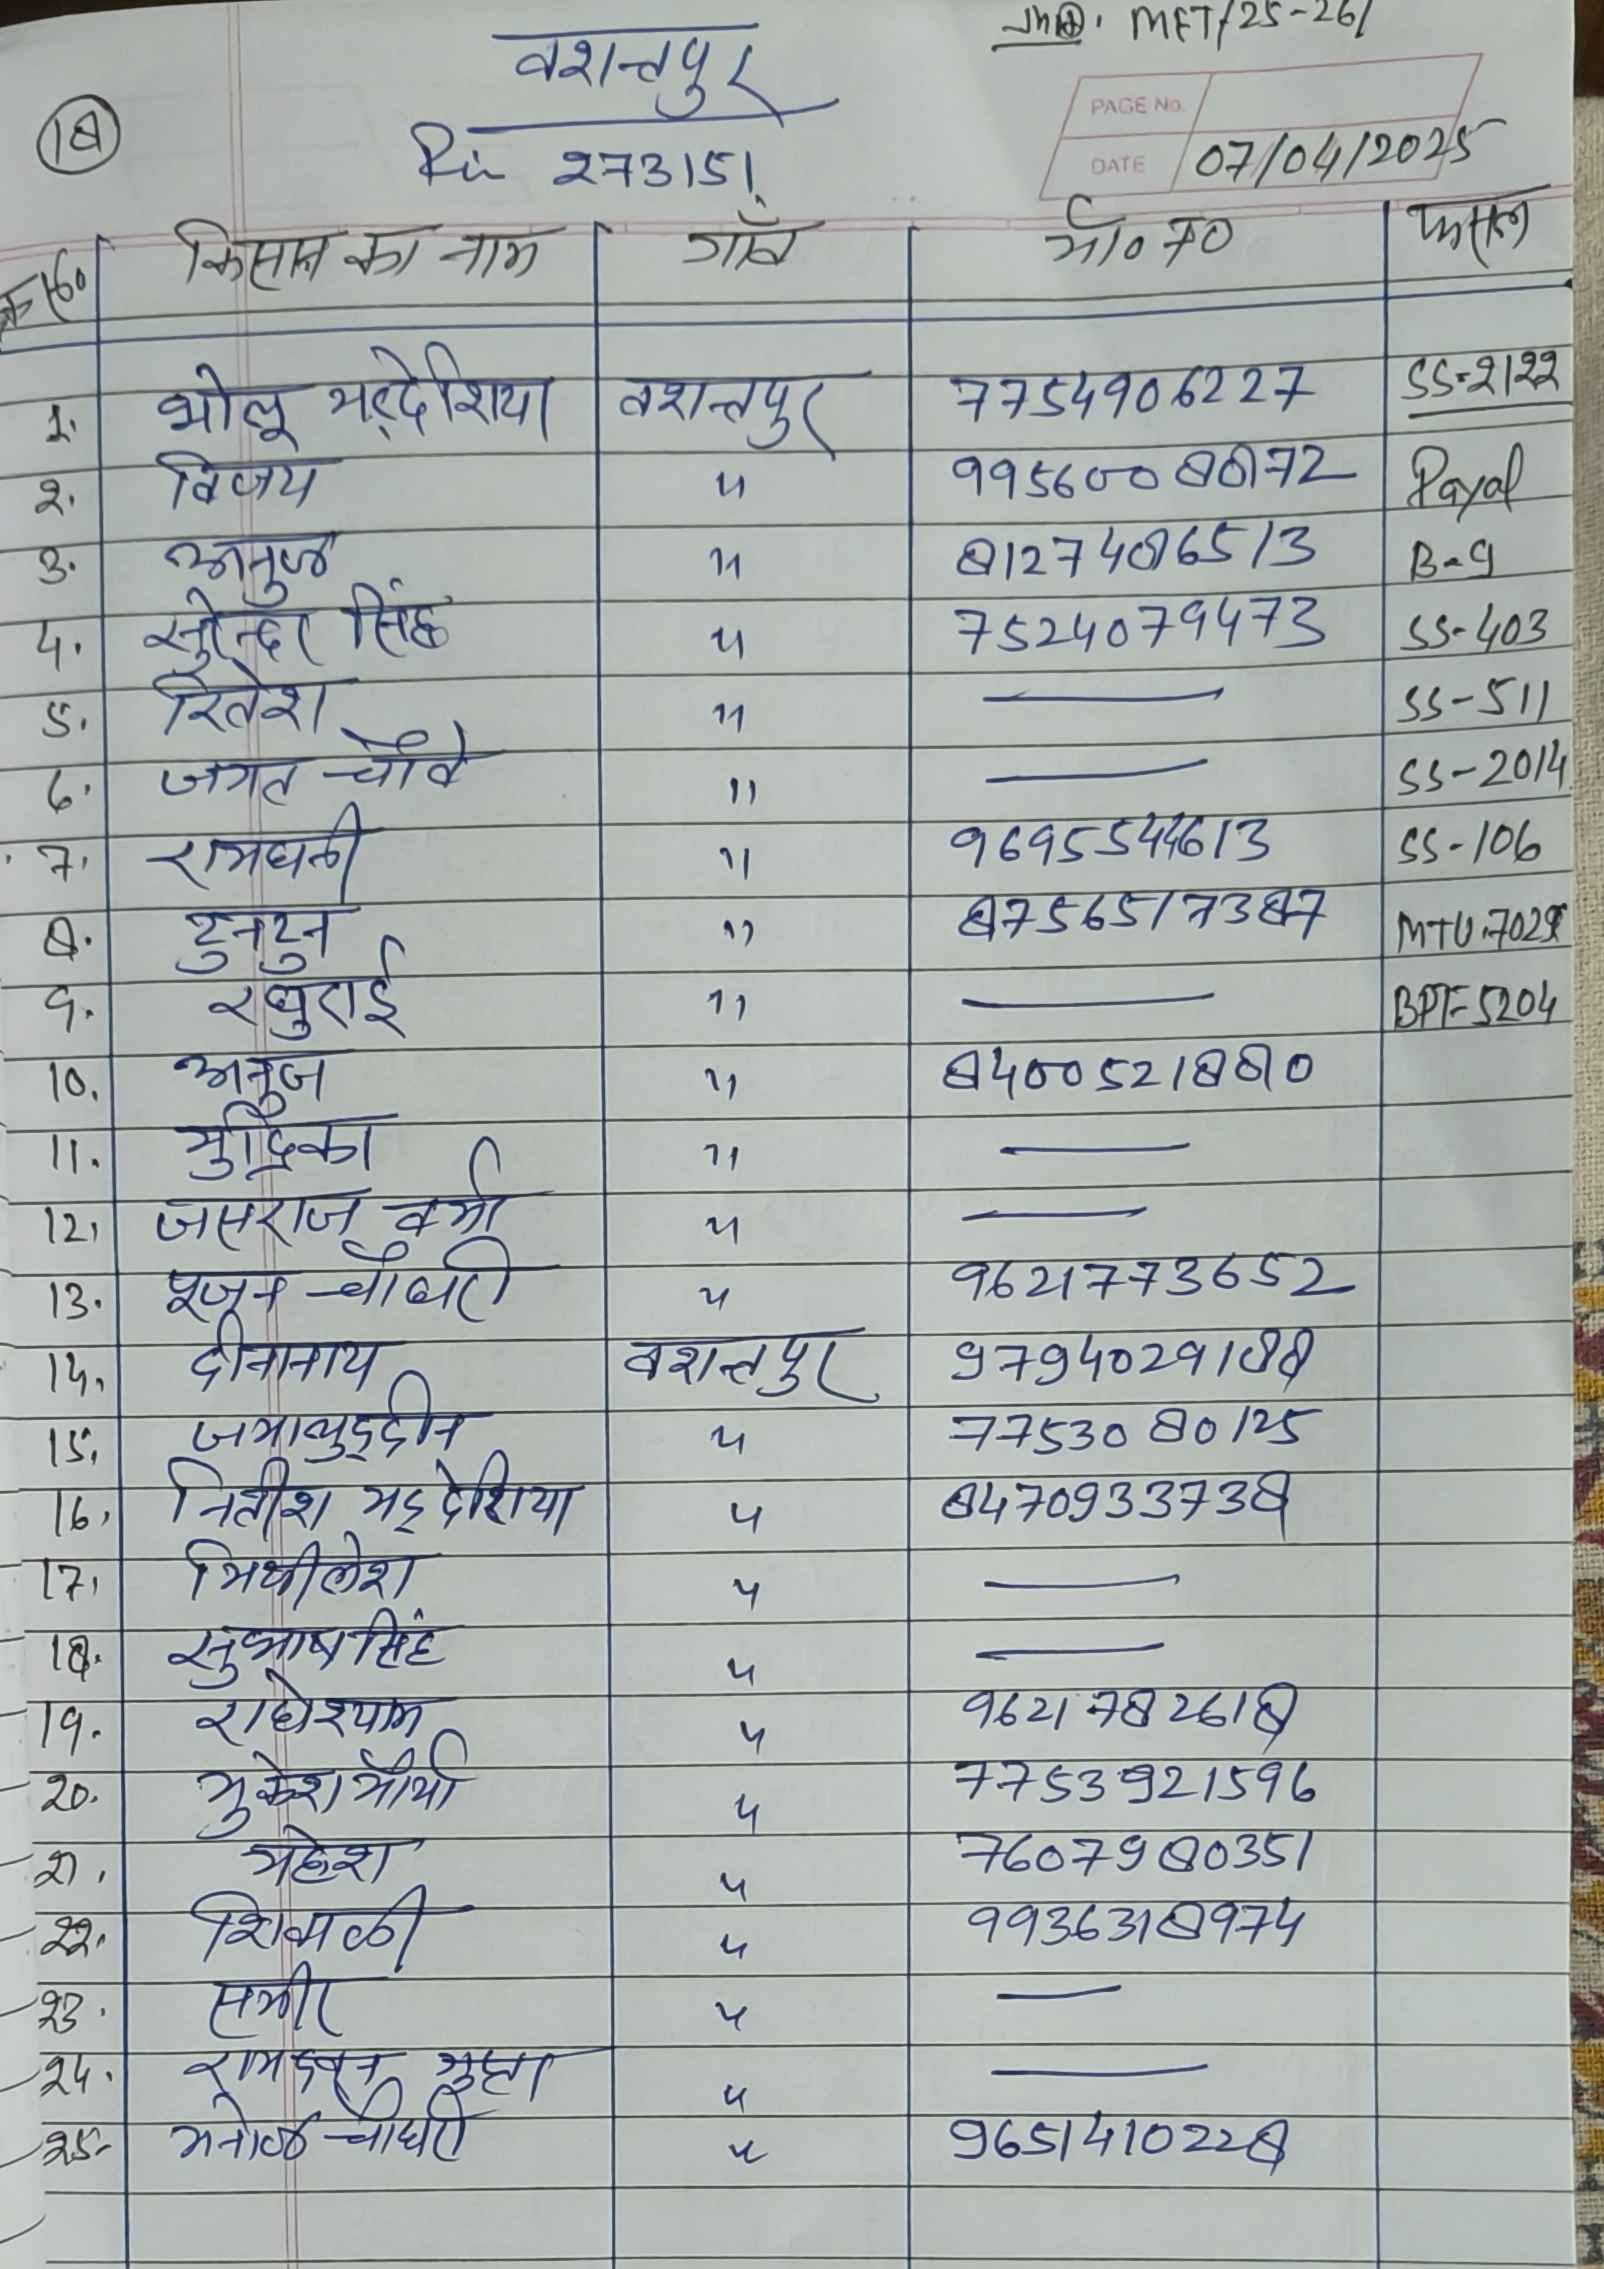 MFT/25-26/
वशन्तपुर
18
PAGE No.
DATE 07/04/2025
Pin 273151
क्र०सं० किसान का नाम गाँव मो० न० फसल
1. भोलू मद्देशिया वशन्तपुर 7754906227 SS-2122
2. विजय " 9956008872 Payal
3. अनुज " 8127486513 B-9
4. सुरेन्द्र सिंह " 7524079473 SS-403
5. रितेश " — SS-511
6. जगत चौबे " — SS-2014
7. रामधनी " 9695544613 SS-106
8. टुनटुन " 8756517387 MTU.7029
9. रघुराई " — BPT-5204
10. अनुज " 8400521880
11. मुद्रिका " —
12. जसराज वर्मा " —
13. पूजन चौधरी " 9621773652
14. दीनानाथ वशन्तपुर 9794029188
15. जमालुद्दीन " 7753080125
16. नितीश मद्देशिया " 8470933738
17. मिथीलेश " —
18. सुभाष सिंह " —
19. राधेश्याम " 9621782618
20. मुकेश मौर्या " 7753921596
21. महेश " 7607980351
22. शिवाजी " 9936318974
23. समीर " —
24. " —
25. मनोज चौधरी " 9651410228